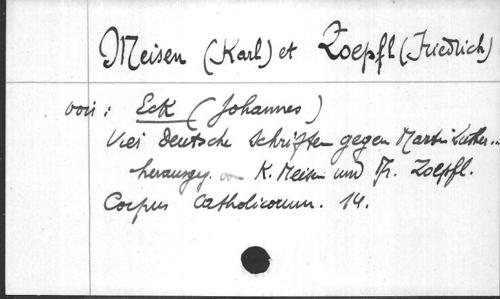 Meisen (Karl) et Zoepfl (Friedrich)
voir : Eck (Johannes)
Vier deutsche Schriften gegen Martin Luther...
herausgeg. von K. Meisen und Fr. Zoepfl.
Corpus Catholicorum. 14.